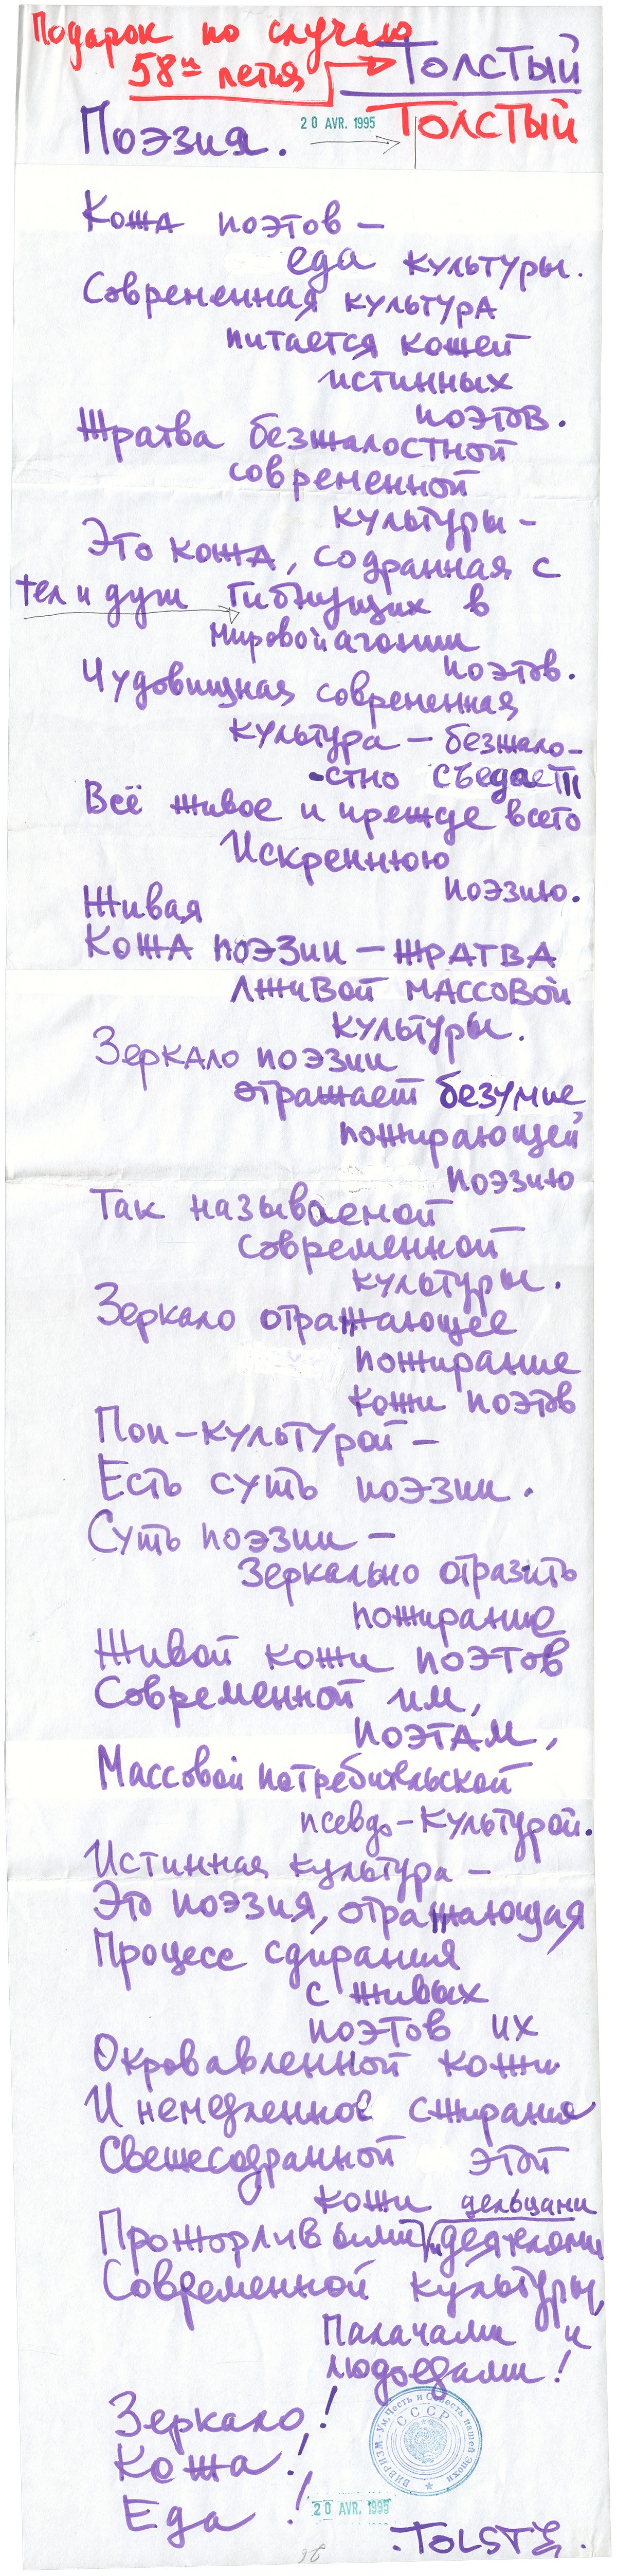 Подарок по случаю
58и летия → Толстый
Толстый
20 AVR. 1995
Поэзия.
Кожа поэтов –
еда культуры.
Современная культура
питается кожей
истинных
поэтов.
Жратва безжалостной
современной
культуры –
Это кожа, содранная с
тел и душ гибнущих в
мировой агонии
поэтов.
Чудовищная современная
культура – безжало-
-стно съедает
Всё живое и прежде всего
Искреннюю
поэзию.
Живая
Кожа поэзии – жратва
лживой массовой
культуры.
Зеркало поэзии
отражает безумие,
пожирающей
поэзию
Так называемой
современной
культуры.
Зеркало отражающее
пожирание
кожи поэтов
Поп-культурой –
Есть суть поэзии.
Суть поэзии –
Зеркально отразить
пожирание
Живой кожи поэтов
Современной им,
поэтам,
Массовой потребительской
псевдо-культурой.
Истинная культура –
Это поэзия, отражающая
Процесс сдирания
с живых
поэтов их
Окровавленной кожи
И немедленное сжирание
Свежесодранной этой
кожи дельцами
Прожорливыми и деятелями
Современной культуры,
Палачами и
людоедами!
Зеркало!
Кожа!
Еда!
ВИВРИЗМ - Ум, Честь и Совесть нашей Эпохи
СССР
20 AVR. 1995
.TOLSTY.
26